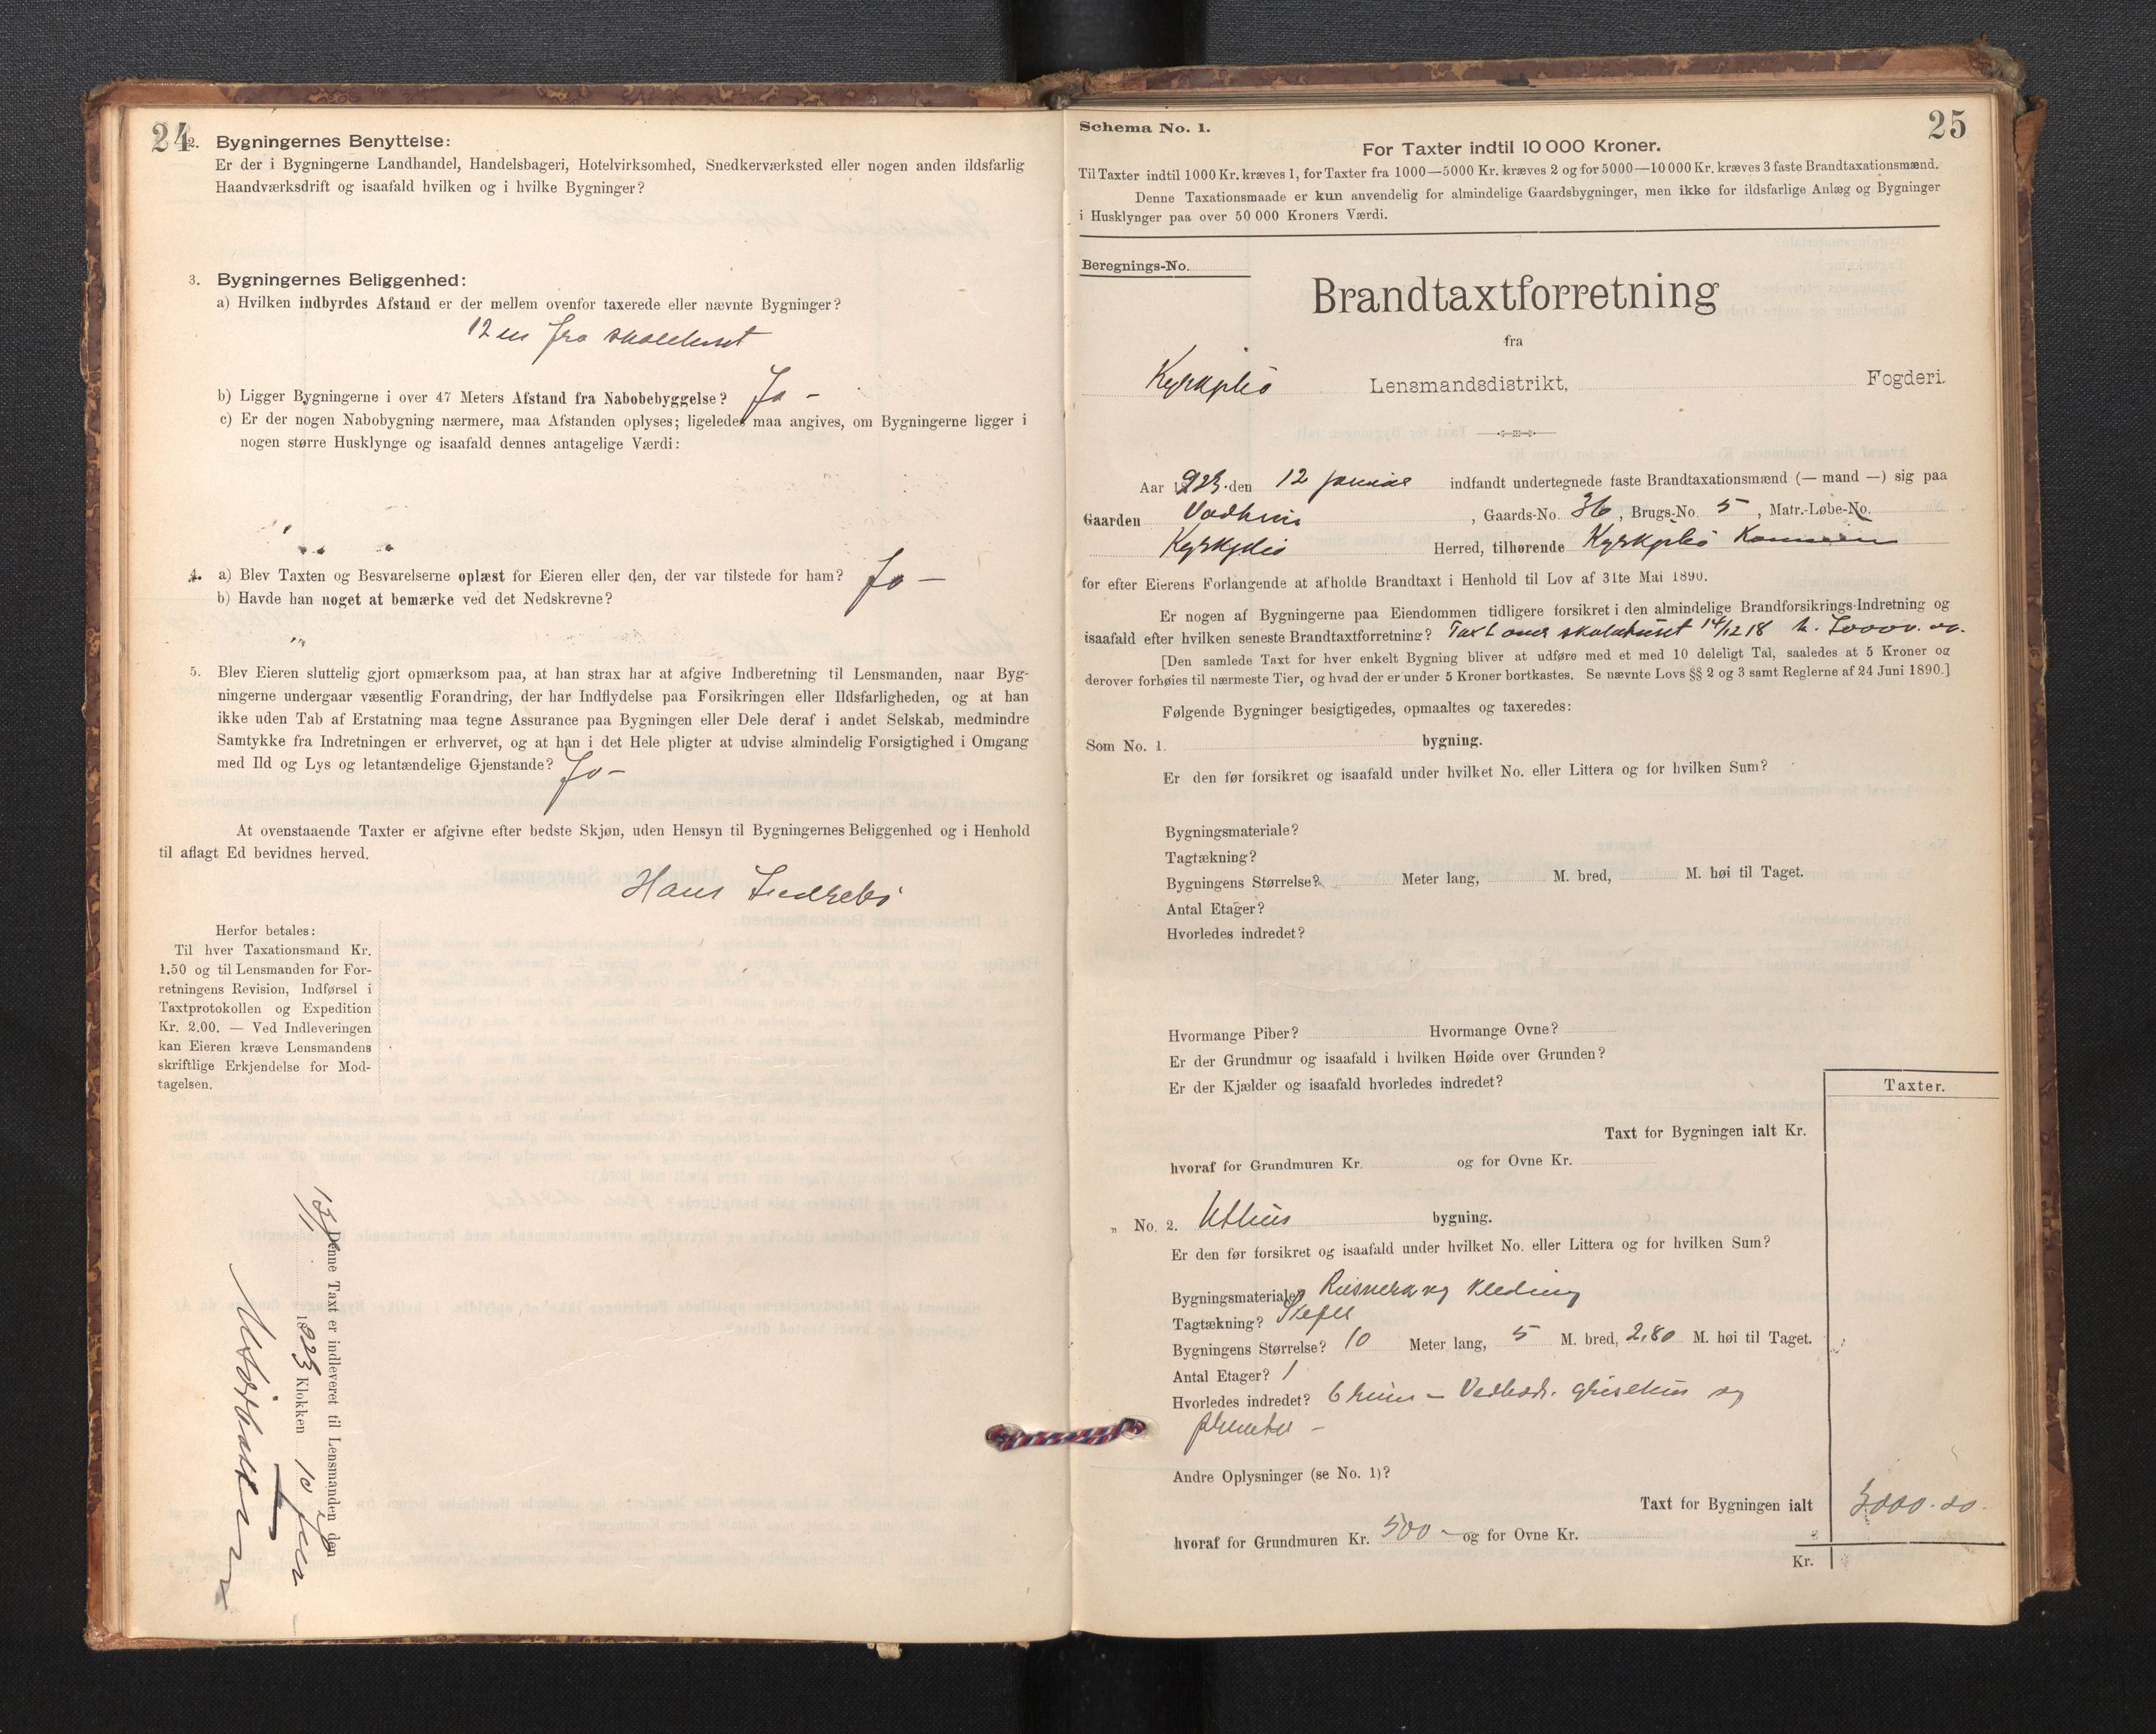 24
2. Bygningernes Benyttelse:
Er der i Bygningerne Landhandel, Handelsbageri, Hotelvirksomhed, Snedkerværksted eller nogen anden ildsfarlig
Haandværksdrift og isaafald hvilken og i hvilke Bygninger?
3. Bygningernes Beliggenhed:
a) Hvilken indbyrdes Afstand er der mellem ovenfor taxerede eller nævnte Bygninger?
12 m fra skolehuset
b) Ligger Bygningerne i over 47 Meters Afstand fra Nabobebyggelse? Ja –
c) Er der nogen Nabobygning nærmere, maa Afstanden oplyses; ligeledes maa angives, om Bygningerne ligger i
nogen større Husklynge og isaafald dennes antagelige Værdi:
" " "
4. a) Blev Taxten og Besvarelserne oplæst for Eieren eller den, der var tilstede for ham? Ja –
b) Havde han noget at bemærke ved det Nedskrevne?
"
5. Blev Eieren sluttelig gjort opmærksom paa, at han strax har at afgive Indberetning til Lensmanden, naar Byg-
ningerne undergaar væsentlig Forandring, der har Indflydelse paa Forsikringen eller Ildsfarligheden, og at han
ikke uden Tab af Erstatning maa tegne Assurance paa Bygningen eller Dele deraf i andet Selskab, medmindre
Samtykke fra Indretningen er erhvervet, og at han i det Hele pligter at udvise almindelig Forsigtighed i Omgang
med Ild og Lys og letantændelige Gjenstande? Ja –
At ovenstaaende Taxter er afgivne efter bedste Skjøn, uden Hensyn til Bygningernes Beliggenhed og i Henhold
til aflagt Ed bevidnes herved.
Hans Indrebö
Herfor betales:
Til hver Taxationsmand Kr.
1.50 og til Lensmanden for For-
retningens Revision, Indførsel i
Taxtprotokollen og Expedition
Kr. 2.00. — Ved Indleveringen
kan Eieren kræve Lensmandens
skriftlige Erkjendelse for Mod-
tagelsen.
Denne Taxt er indleveret til Lensmanden den
13/1 1923 Klokken 10 f
25
Schema No. 1.
For Taxter indtil 10 000 Kroner.
Til Taxter indtil 1000 Kr. kræves 1, for Taxter fra 1000—5000 Kr. kræves 2 og for 5000—10 000 Kr. kræves 3 faste Brandtaxationsmænd.
Denne Taxationsmaade er kun anvendelig for almindelige Gaardsbygninger, men ikke for ildsfarlige Anlæg og Bygninger
i Husklynger paa over 50 000 Kroners Værdi.
Beregnings-No.
Brandtaxtforretning
fra
Kyrkjebö Lensmandsdistrikt, Fogderi.
Aar 1923 den 12 januar indfandt undertegnede faste Brandtaxationsmænd (— mand —) sig paa
Gaarden Vadheim, Gaards-No. 36, Brugs-No. 5, Matr.-Løbe-No.
Kyrkjebö Herred, tilhørende Kyrkjebö Kommune
for efter Eierens Forlangende at afholde Brandtaxt i Henhold til Lov af 31te Mai 1890.
Er nogen af Bygningerne paa Eiendommen tidligere forsikret i den almindelige Brandforsikrings-Indretning og
isaafald efter hvilken seneste Brandtaxtforretning? Taxt over skolehuset 14/12 18
[Den samlede Taxt for hver enkelt Bygning bliver at udføre med et med 10 deleligt Tal, saaledes at 5 Kroner og
derover forhøies til nærmeste Tier, og hvad der er under 5 Kroner bortkastes. Se nævnte Lovs §§ 2 og 3 samt Reglerne af 24 Juni 1890.]
Følgende Bygninger besigtigedes, opmaaltes og taxeredes:
Som No. 1. bygning.
Er den før forsikret og isaafald under hvilket No. eller Littera og for hvilken Sum?
Bygningsmateriale?
Tagtækning?
Bygningens Størrelse? Meter lang, M. bred, M. høi til Taget.
Antal Etager?
Hvorledes indredet?
Hvormange Piber? Hvormange Ovne?
Er der Grundmur og isaafald i hvilken Høide over Grunden?
Er der Kjælder og isaafald hvorledes indredet?
Taxter.
Taxt for Bygningen ialt Kr.
hvoraf for Grundmuren Kr. og for Ovne Kr.
„ No. 2. Uthus bygning.
Er den før forsikret og isaafald under hvilket No. eller Littera og for hvilken Sum?
Bygningsmateriale? Reisverk og kledning
Tagtækning? Skifer
Bygningens Størrelse? 10 Meter lang, 5 M. bred, 2.80 M. høi til Taget.
Antal Etager? 1
Hvorledes indredet? 6 rum – Vedbod. grisehus og
priveter –
Andre Oplysninger (se No. 1)?
Taxt for Bygningen ialt 3000.00.
hvoraf for Grundmuren Kr. 500 – og for Ovne Kr.
Kr.